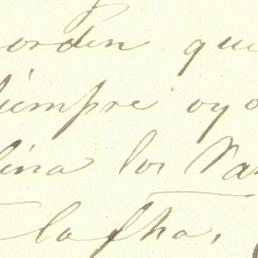 orden que
siempre oyo
lina los Sa
la fha.